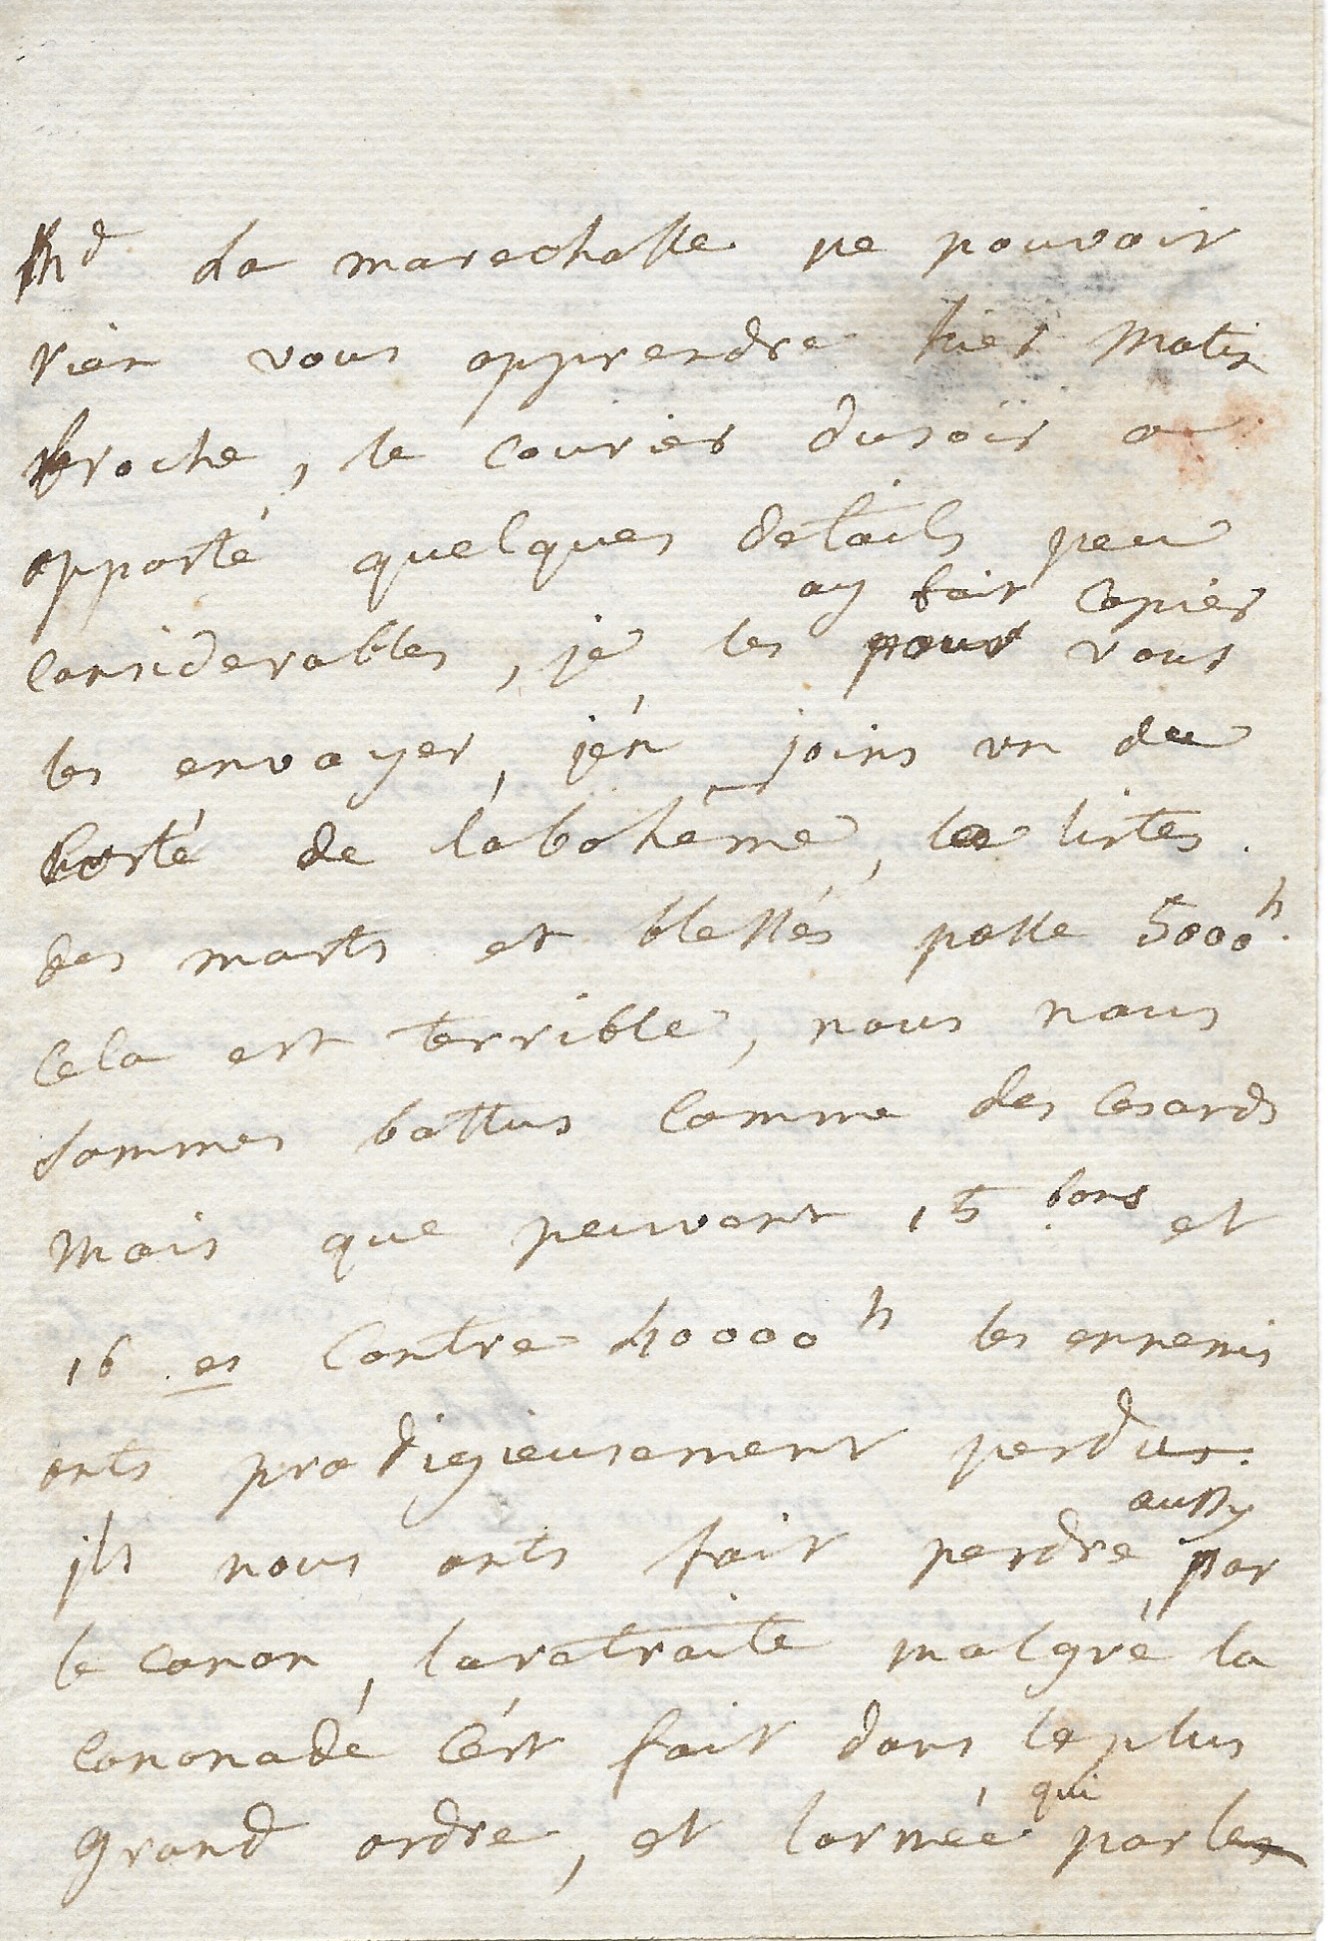 Md la marechalle ne pouvoit
rien vous apprendre hier matin
broche, le courier dusoir a
apporté quelques details peu
ay fait copier
considerables, je les pour vous
les envoyer, j'én joins un du
Corté de la bohéme, les listes
des morts et blessés passe 5000h.
Cela est terrible, nous nous
sommes battus comme des Cesards
mais que peuvent 15 bons et
16 es contre 40000h les ennemis
onts prodigieusement perdus.
aussy
ils nous onts fait perdre par
le canon, la retraite malgré la
canonadé c'ést fait dans le plus
qui
grand ordre, et l'arméé par les